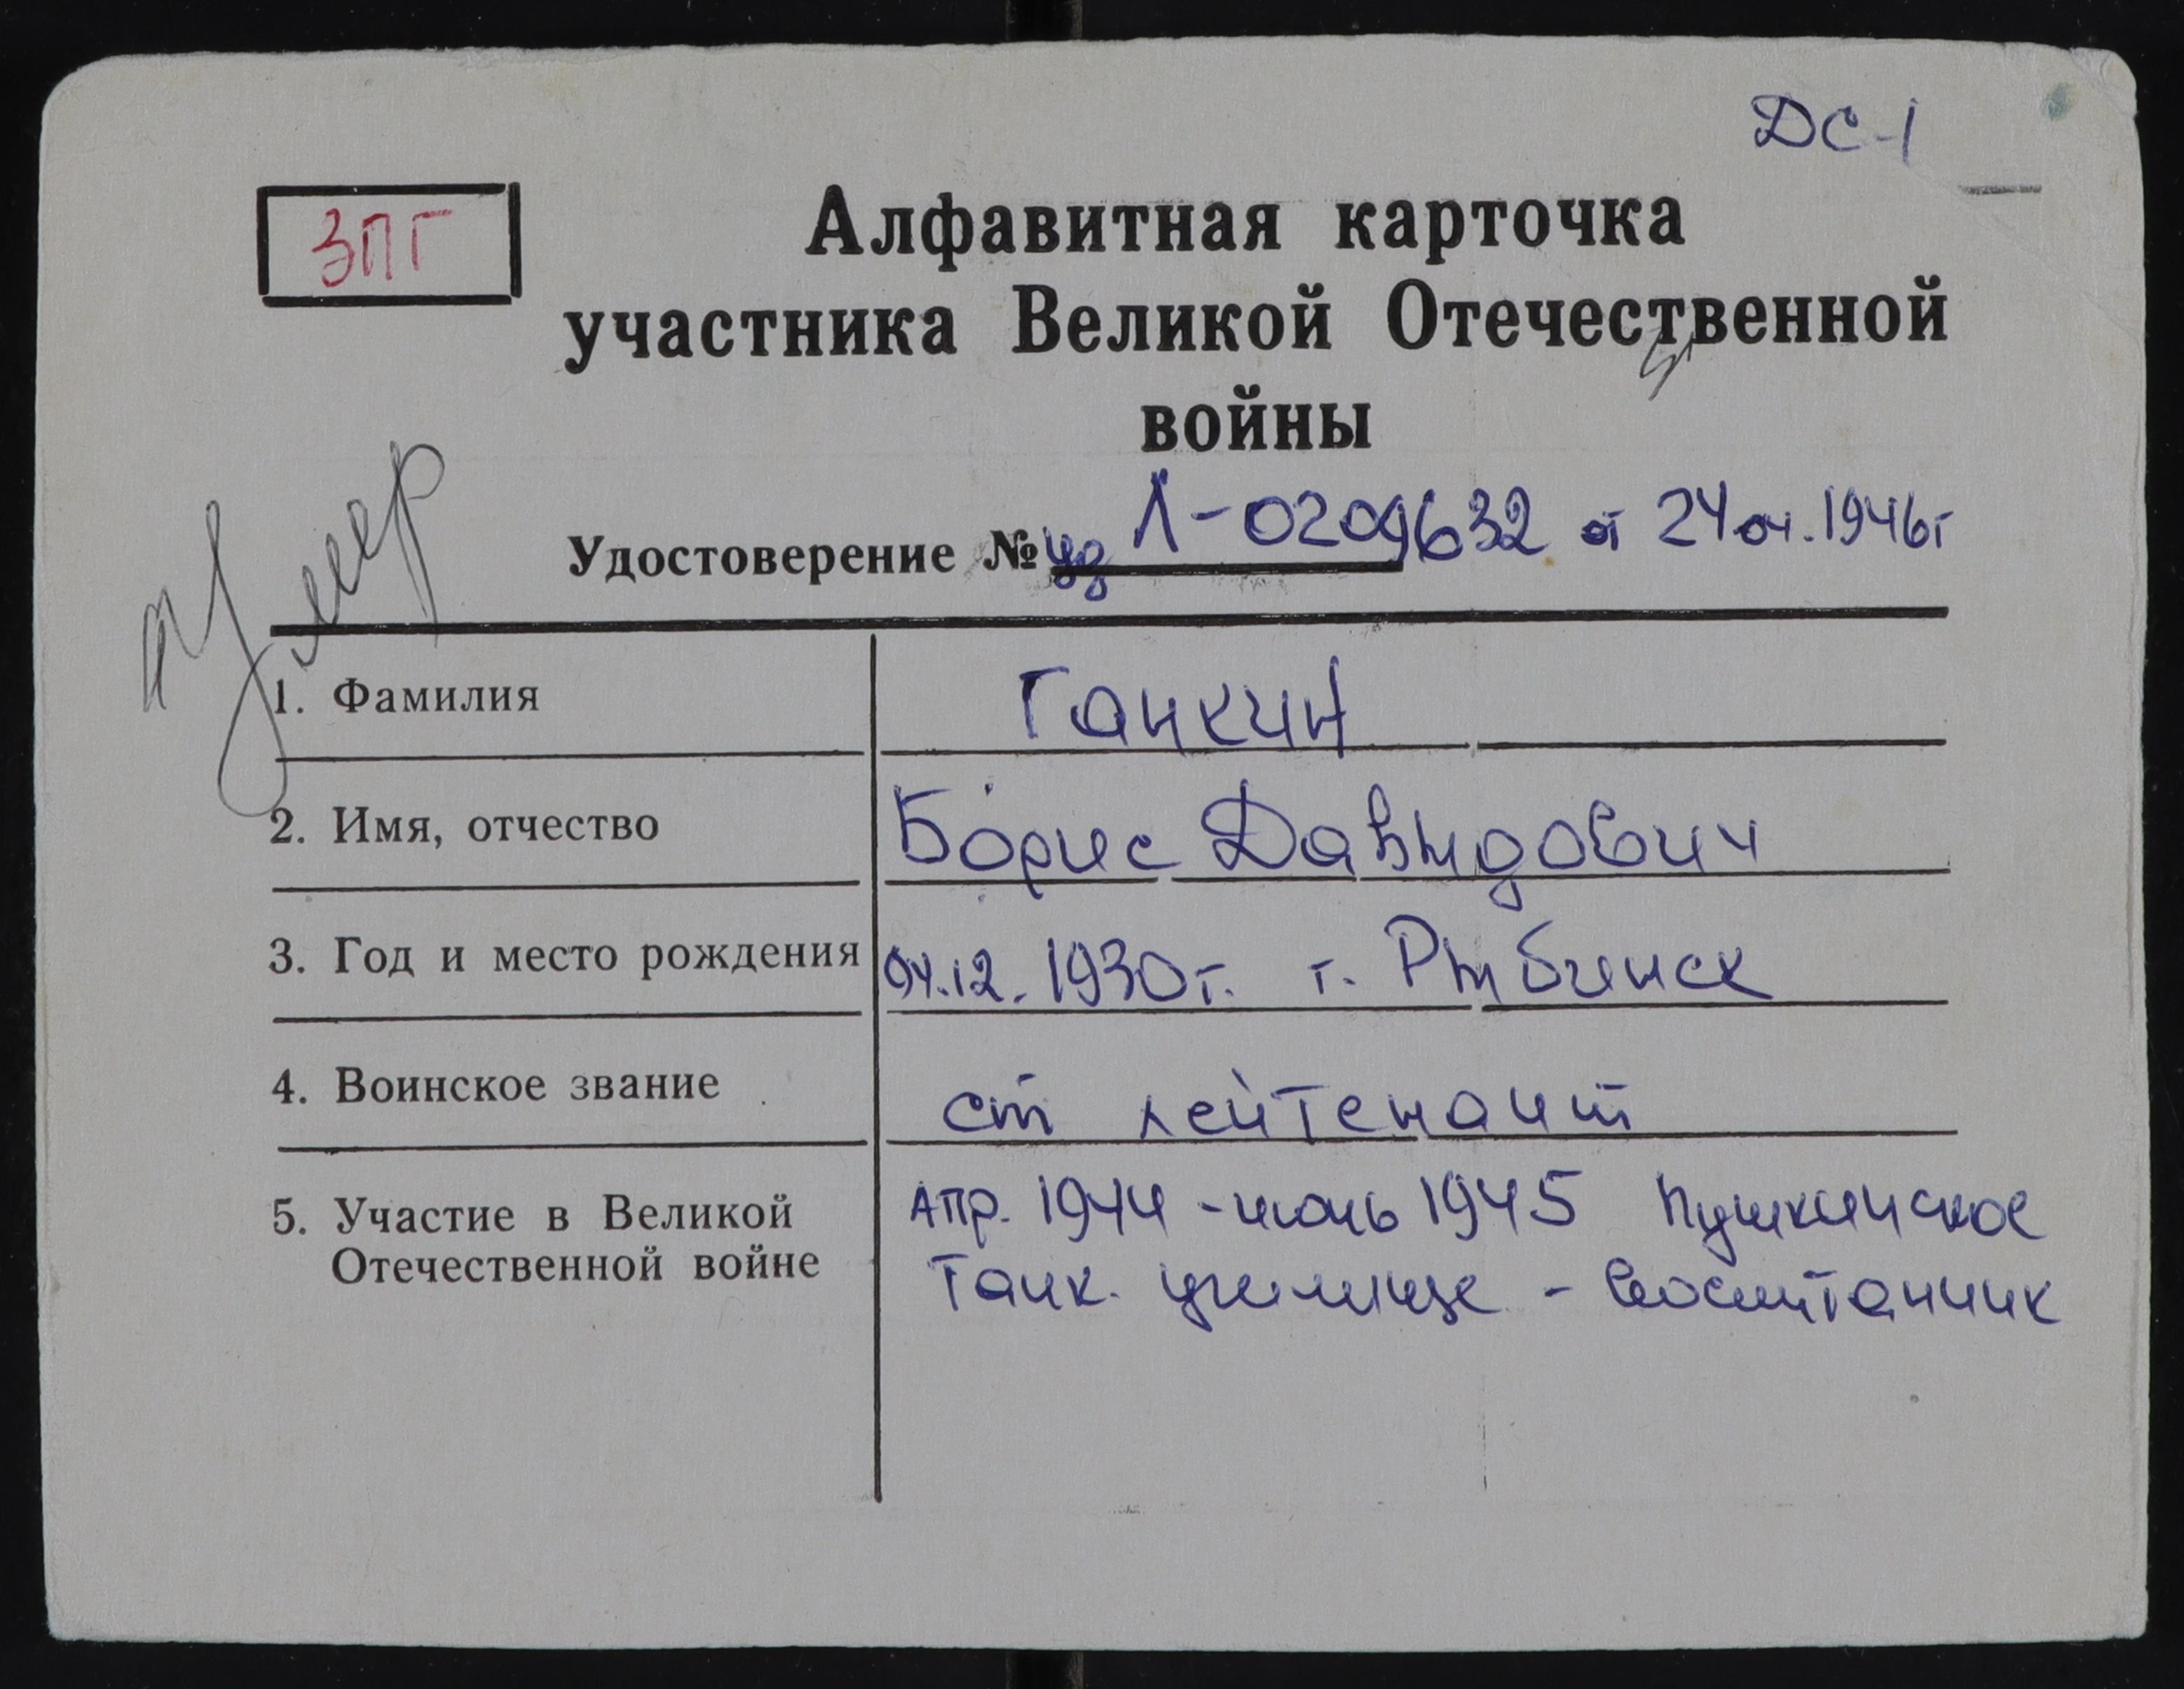 ДС-1
ЗПГ
Алфавитная карточка
участника Великой Отечественной
войны
умер
Удостоверение № уд Л-0209632 от 24 1946г
1. Фамилия Ганкин
2. Имя, отчество Борис Давыдович
3. Год и место рождения 04.12.1930г. г. Рыбинск
4. Воинское звание ст лейтенант
5. Участие в Великой Отечественной войне
Апр. 1944 - июнь 1945 Пушкинское
Танк. училище - воспитанник